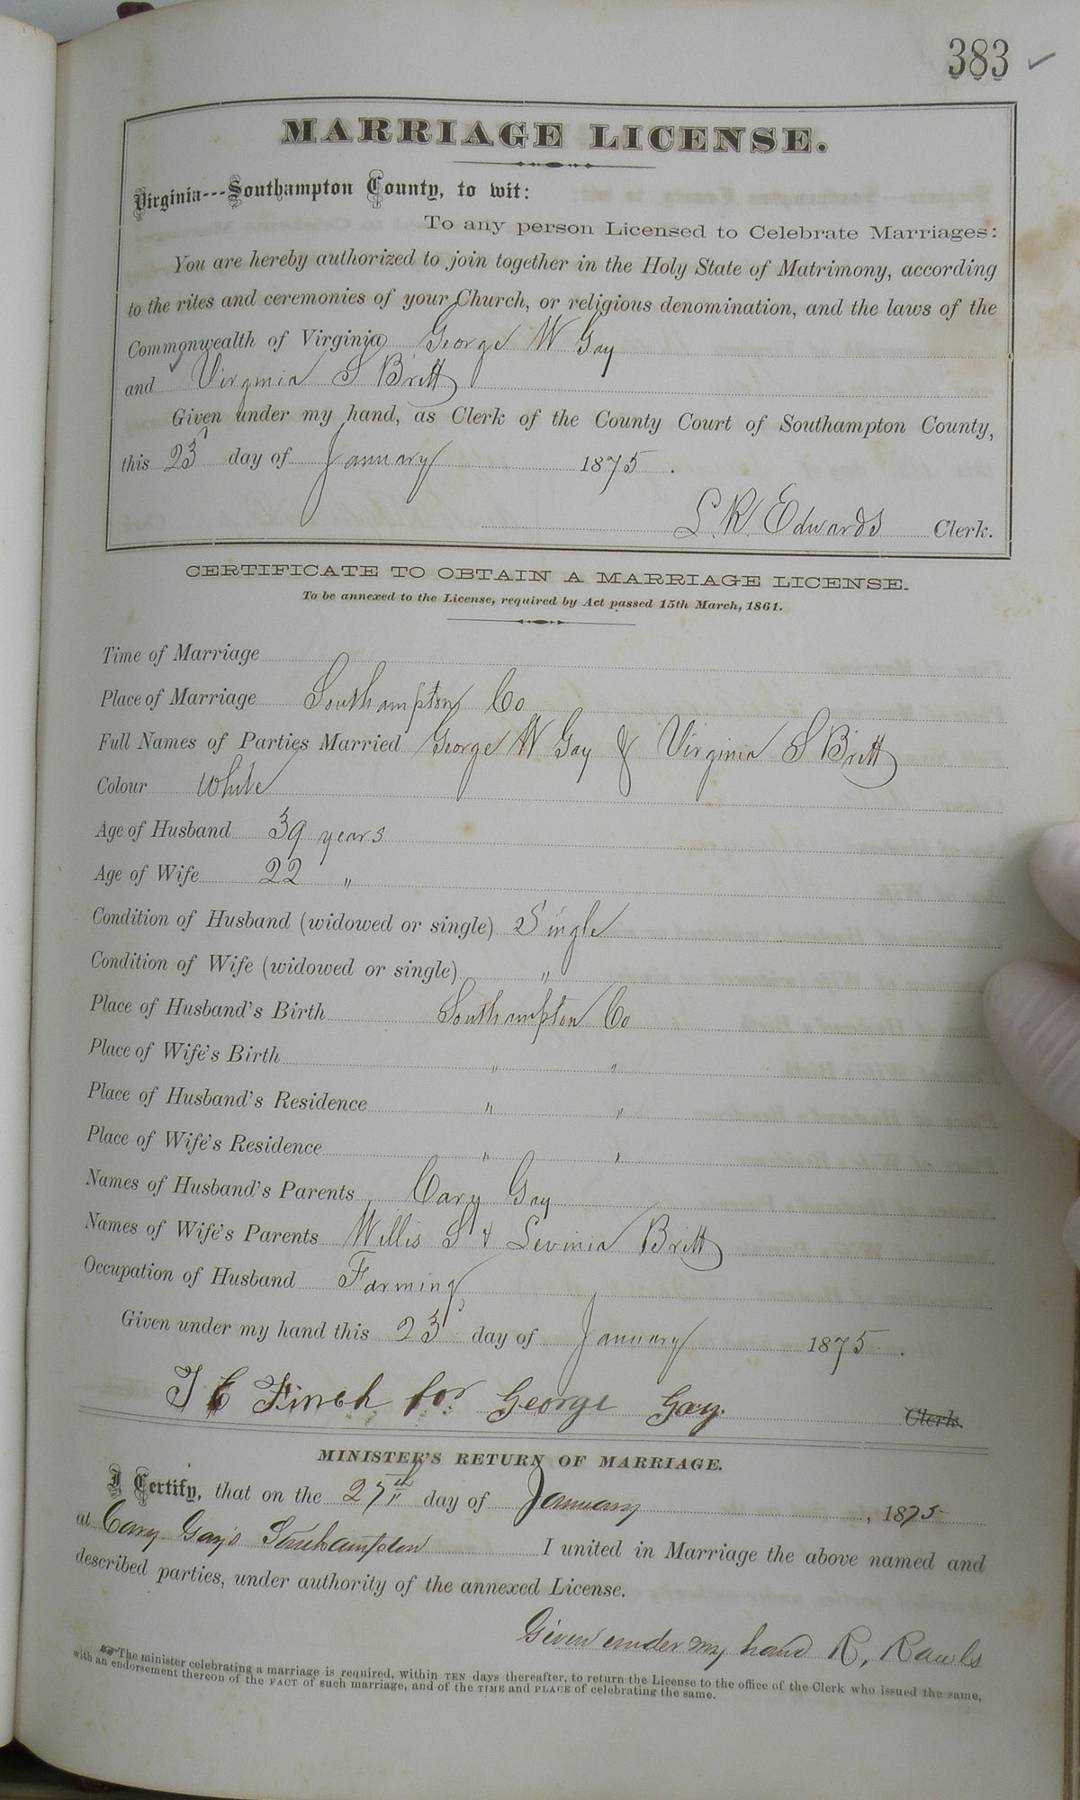 383
MARRIAGE LICENSE.
Virginia---Southampton County, to wit:
To any person Licensed to Celebrate Marriages:
You are hereby authorized to join together in the Holy State of Matrimony, according
to the rites and ceremonies of your Church, or religious denomination, and the laws of the
Commonwealth of Virginia George W Gay
and Virginia S Britt
Given under my hand, as Clerk of the County Court of Southampton County,
this 23 day of January 1875.
L R Edwards Clerk.
CERTIFICATE TO OBTAIN A MARRIAGE LICENSE.
To be annexed to the License, required by Act passed 15th March, 1861.
Time of Marriage
Place of Marriage Southampton Co
Full Names of Parties Married George W Gay & Virginia S Britt
Colour White
Age of Husband 39 years
Age of Wife 22 "
Condition of Husband (widowed or single) Single
Condition of Wife (widowed or single) "
Place of Husband's Birth Southampton Co
Place of Wife's Birth " "
Place of Husband's Residence " "
Place of Wife's Residence " "
Names of Husband's Parents Cary Gay
Names of Wife's Parents Willis S & Levinia Britt
Occupation of Husband Farming
Given under my hand this 23 day of January 1875.
J E Finch for George Gay. Clerk.
MINISTER'S RETURN OF MARRIAGE.
I Certify, that on the 27th day of January, 1875
at Cary Gay's Southampton I united in Marriage the above named and
described parties, under authority of the annexed License.
Given under my hand R, Rawls
The minister celebrating a marriage is required, within TEN days thereafter, to return the License to the office of the Clerk who issued the same,
with an endorsement thereon of the FACT of such marriage, and of the TIME and PLACE of celebrating the same.